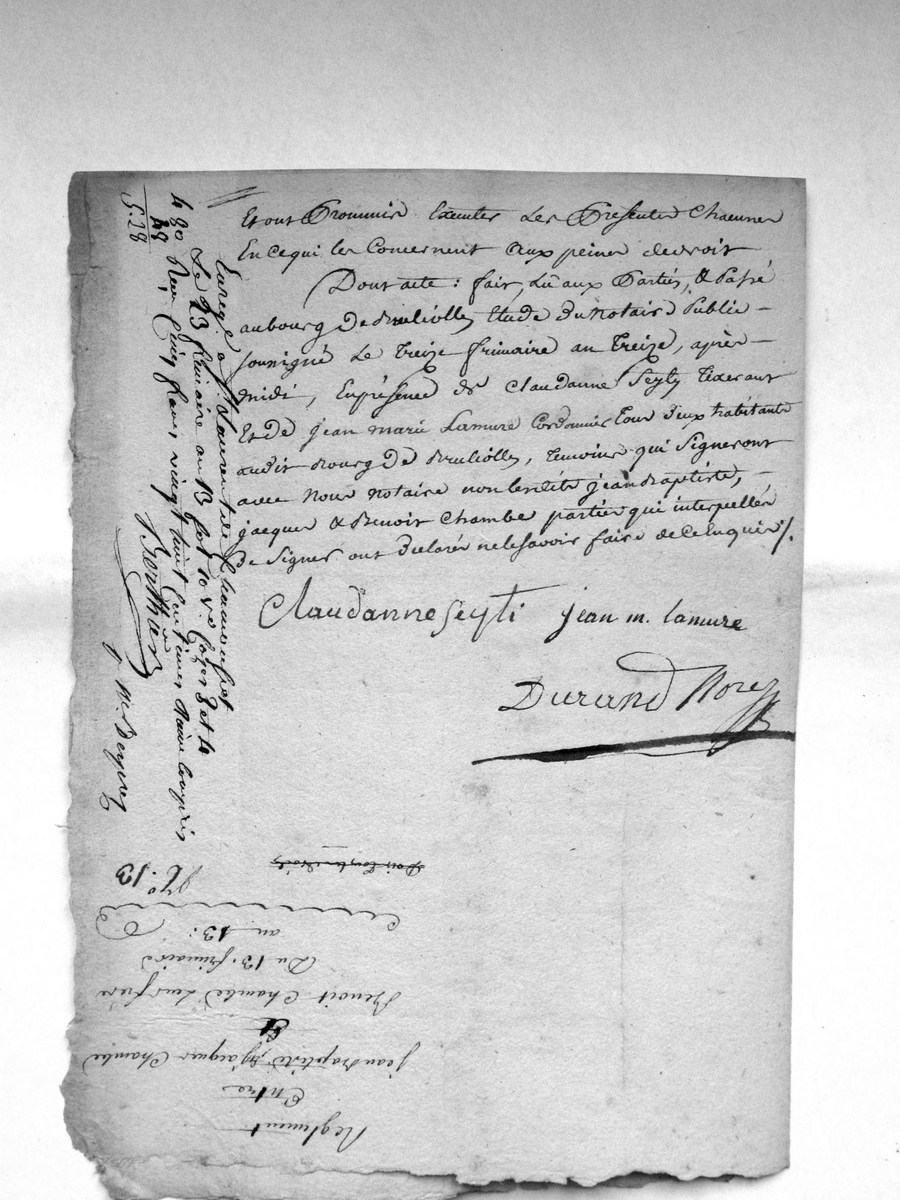 Et ont Prommis Executer Les Presentes Chacunes
En ce qui les Concernent Aux peines de droit
Dont acte : fait, Lu aux Parties, & Passé
au bourg de Brullioles Etude du notaire Public
soussigné Le treize frimaire an treize, après
midi, En présence de Claudanne Seyty tixerant
Et de jean marie Lamure Cordonnier tous deux habitants
audit bourg de Brullioles, temoins qui signeront
avec Nous notaire non lesdits jean Baptiste,
jacques & Benoit Chambe parties qui interpellés
de signer ont declaré ne le savoir faire de ce Enquis /.
Claudanne seyti jean m. lamure
Durand Nore
Enregé a St Laurent de Chamousset
Le 23 frimaire an 13 fol. 10 vo Cases 3 et 4
Reçu Cinq francs vingt huit Centimes
Berthier
4 80
48
5.28
no. 13
Reglement
Entre
jean Baptiste, jacques Chambe
Et
Benoit Chambe Leur frere
Du 13. frimaire
an 13: